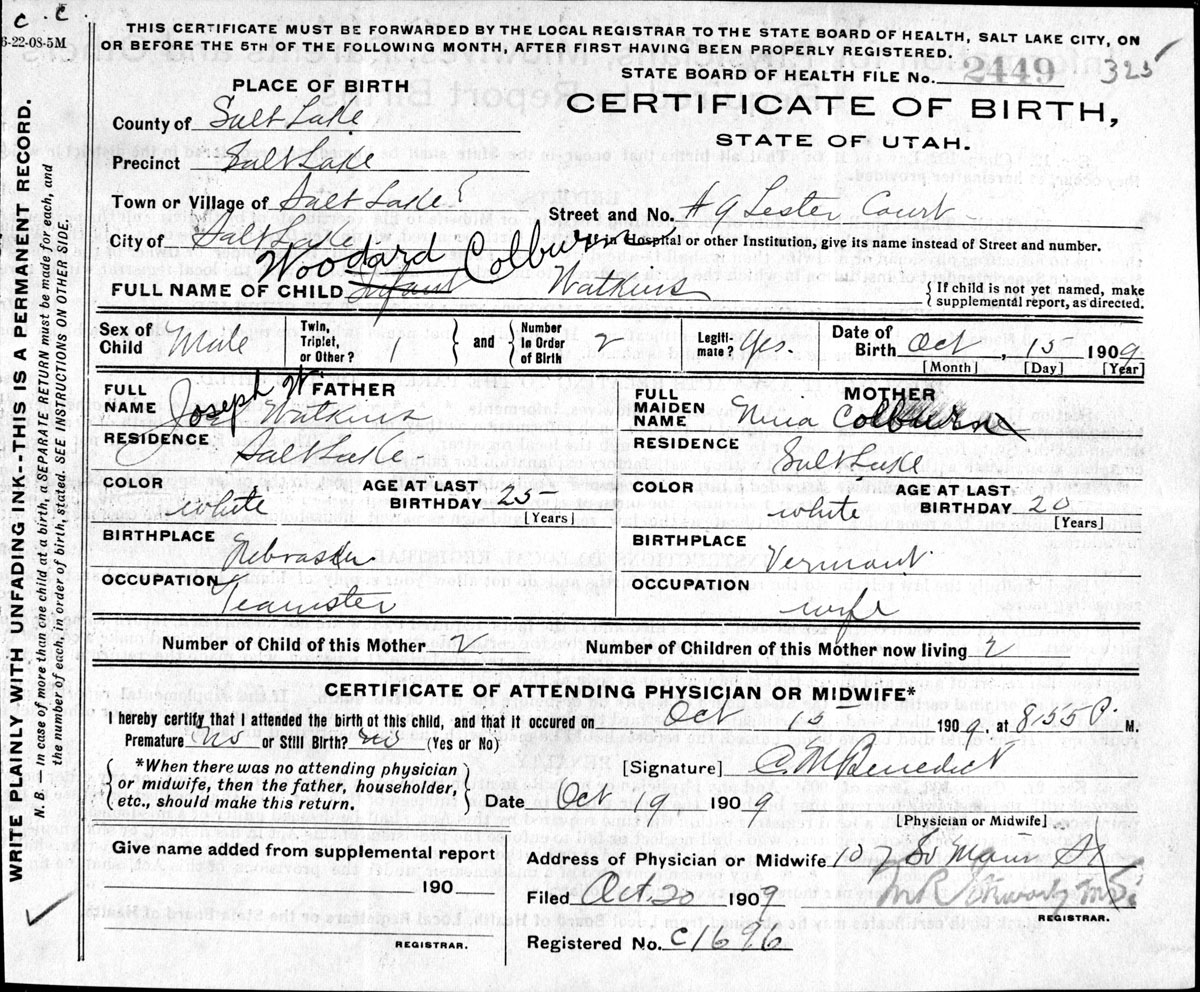 C. C.
6-22-08-5M
THIS CERTIFICATE MUST BE FORWARDED BY THE LOCAL REGISTRAR TO THE STATE BOARD OF HEALTH, SALT LAKE CITY, ON
OR BEFORE THE 5TH OF THE FOLLOWING MONTH, AFTER FIRST HAVING BEEN PROPERLY REGISTERED.
STATE BOARD OF HEALTH FILE No. 2449 325
PLACE OF BIRTH
CERTIFICATE OF BIRTH,
STATE OF UTAH.
County of Salt Lake
Precinct Salt Lake
Town or Village of Salt Lake
Street and No. # 9 Lester Court
City of Salt Lake
in Hospital or other Institution, give its name instead of Street and number.
Woodard Colburn
FULL NAME OF CHILD Infant Watkins
{If child is not yet named, make
supplemental report, as directed.
Sex of Child Male
Twin, Triplet, or Other? 1 } and { Number in Order of Birth 2
Legiti-mate? Yes
Date of Birth Oct, 15 1909
[Month] [Day] [Year]
FATHER
FULL NAME Joseph W Watkins
RESIDENCE Salt Lake
COLOR white
AGE AT LAST BIRTHDAY 25
[Years]
BIRTHPLACE Nebraska
OCCUPATION Teamster
MOTHER
FULL MAIDEN NAME Nina Colburn
RESIDENCE Salt Lake
COLOR white
AGE AT LAST BIRTHDAY 20
[Years]
BIRTHPLACE Vermont
OCCUPATION wife
Number of Child of this Mother 2
Number of Children of this Mother now living 2
CERTIFICATE OF ATTENDING PHYSICIAN OR MIDWIFE*
I hereby certify that I attended the birth of this child, and that it occured on Oct 15 1909, at 855 P. M.
Premature No or Still Birth? No (Yes or No)
{*When there was no attending physician
or midwife, then the father, householder,
etc., should make this return.}
[Signature] C M Benedict
Date Oct 19 1909
[Physician or Midwife]
Give name added from supplemental report
190
REGISTRAR.
Address of Physician or Midwife 107 So Main St
Filed Oct 20 1909
REGISTRAR.
Registered No. C1696
WRITE PLAINLY WITH UNFADING INK--THIS IS A PERMANENT RECORD.
N. B. In case of more than one child at a birth, a SEPARATE RETURN must be made for each, and
the number of each, in order of birth, stated. SEE INSTRUCTIONS ON OTHER SIDE.